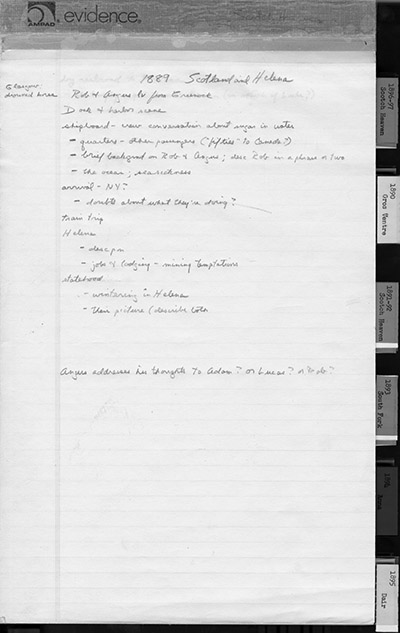 AMPAD evidence®
1889 Scotland and Helena
Glasgow
Rob & Angus lv from Greenock
Dock & harbor scene
shipboard - crew conversation about in water
- quarters - other passengers ("fifties" to Canada?)
- brief background on Rob & Angus; desc Rob in a phrase or two
- the ocean; seasickness
arrival - NY?
- doubts about what they're doing?
train trip
Helena
- descpn
- jobs & lodging - mining temptations
statehood
- wintering in Helena
- their picture (describe both
Angus addresses his thoughts to Adair? or Lucas? or Rob?
1896-97
Scotch Heaven
1890
Gros Ventre
1891-92
Scotch Heaven
1893
South Fork
1894
Anna
1895
Dair